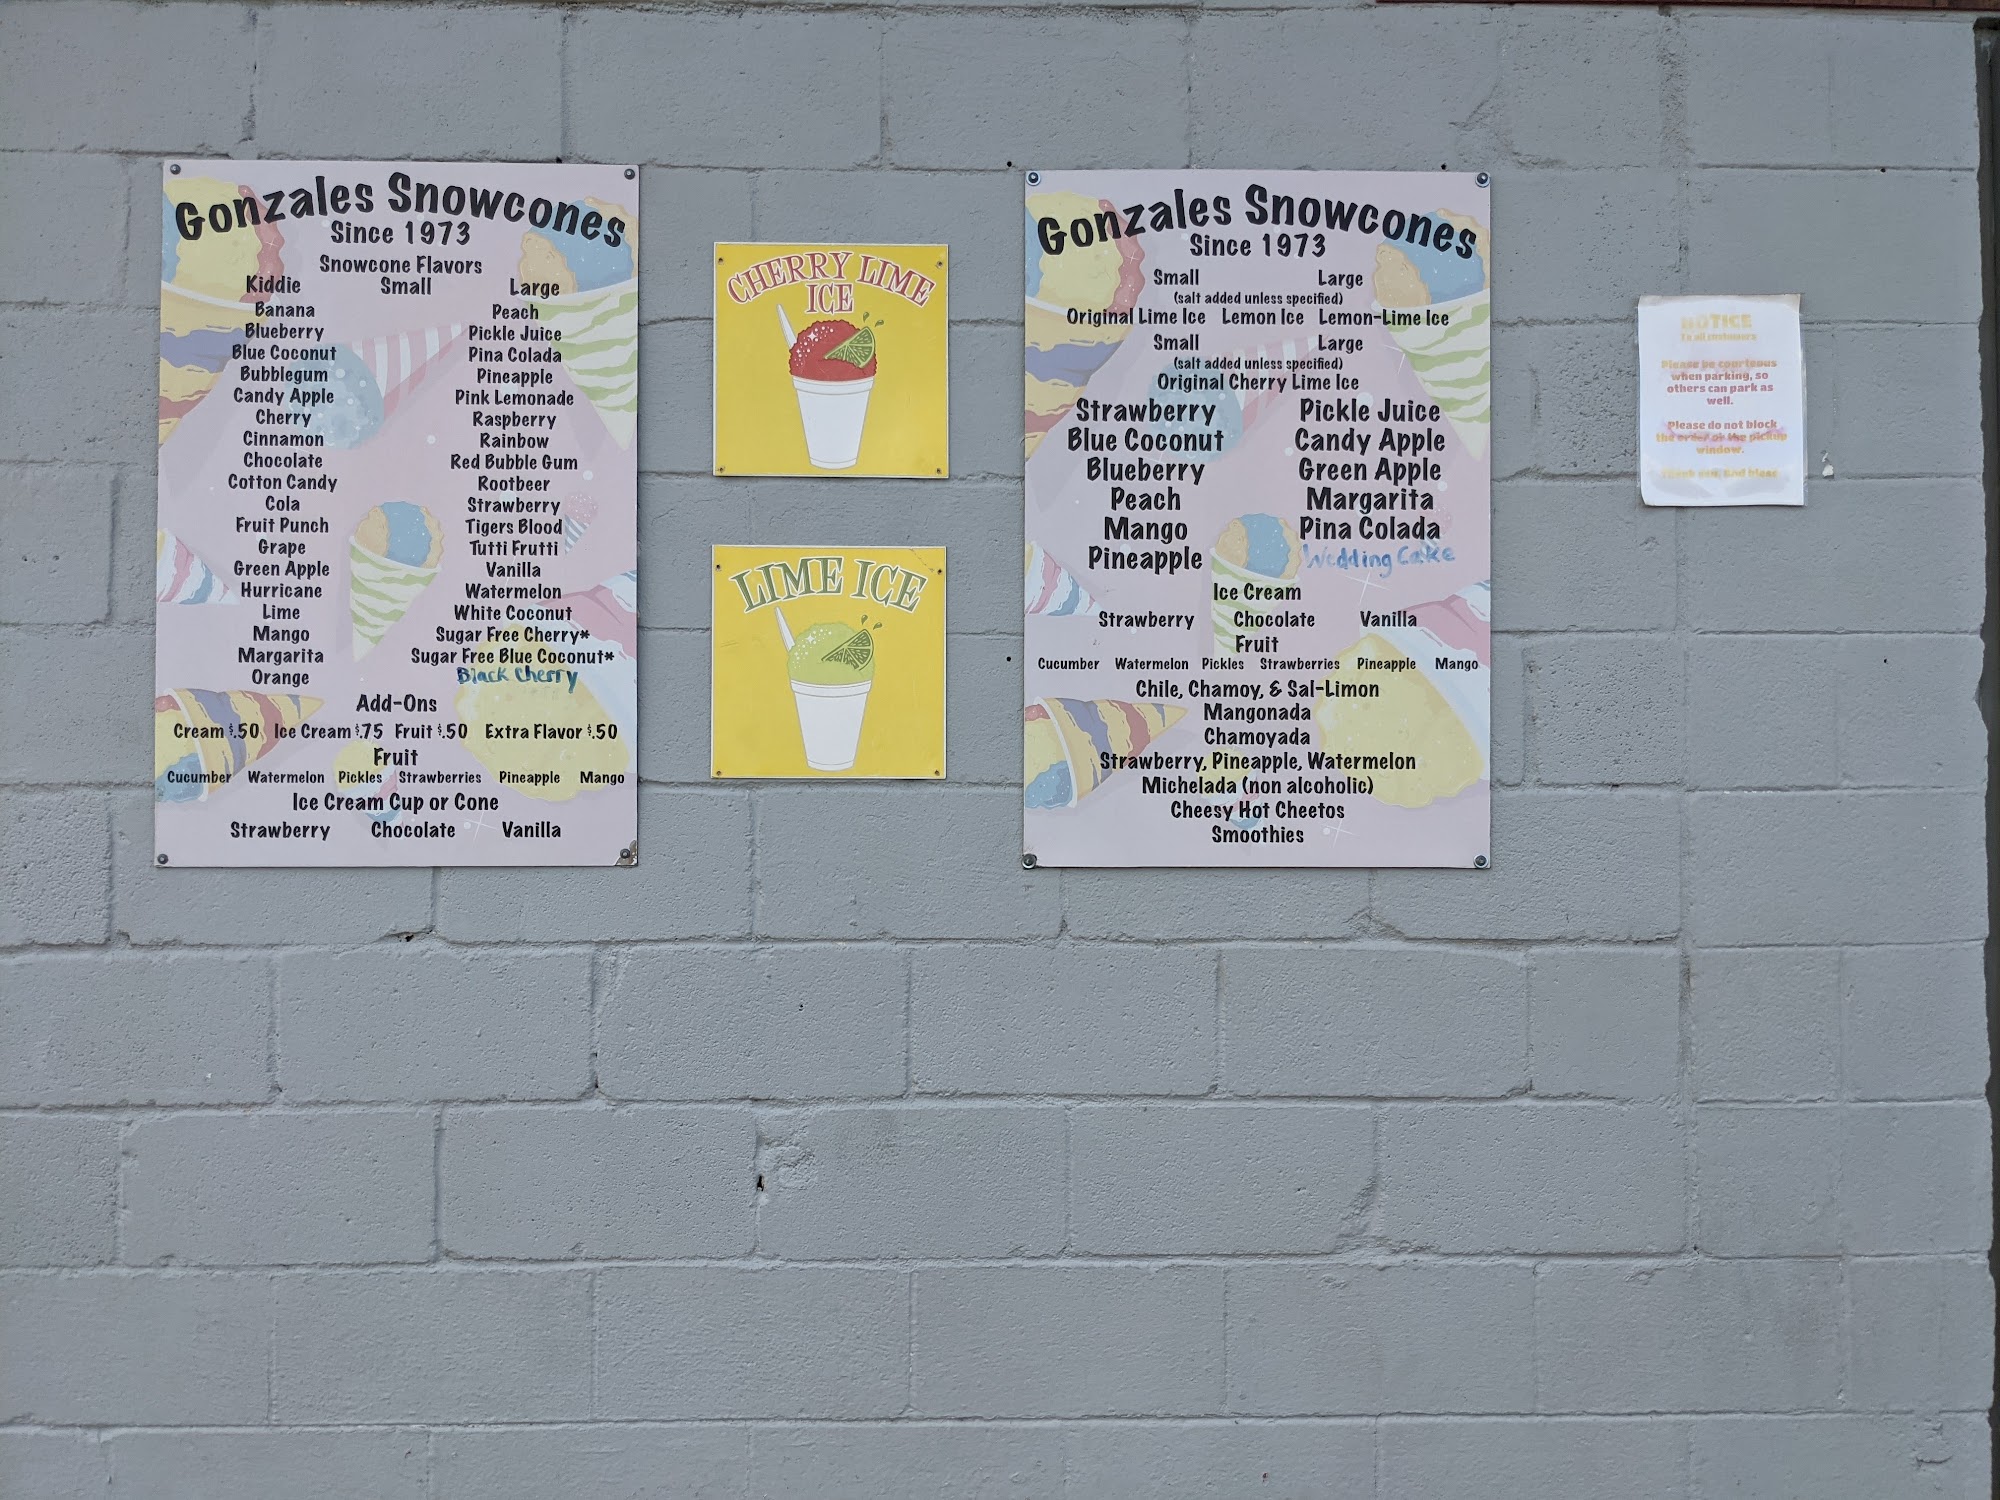 Gonzales Snowcones
Since 1973
Snowcone Flavors
Kiddie Small Large
Banana Peach
Blueberry Pickle Juice
Blue Coconut Pina Colada
Bubblegum Pineapple
Candy Apple Pink Lemonade
Cherry Raspberry
Cinnamon Rainbow
Chocolate Red Bubble Gum
Cotton Candy Rootbeer
Cola Strawberry
Fruit Punch Tigers Blood
Grape Tutti Frutti
Green Apple Vanilla
Hurricane Watermelon
Lime White Coconut
Mango Sugar Free Cherry*
Margarita Sugar Free Blue Coconut*
Orange Black Cherry
Add-Ons
Cream $.50 Ice Cream $.75 Fruit $.50 Extra Flavor $.50
Fruit
Cucumber Watermelon Pickles Strawberries Pineapple Mango
Ice Cream Cup or Cone
Strawberry Chocolate Vanilla
CHERRY LIME
ICE
LIME ICE
Gonzales Snowcones
Since 1973
Small Large
(salt added unless specified)
Original Lime Ice Lemon Ice Lemon-Lime Ice
Small Large
(salt added unless specified)
Original Cherry Lime Ice
Strawberry Pickle Juice
Blue Coconut Candy Apple
Blueberry Green Apple
Peach Margarita
Mango Pina Colada
Pineapple Wedding Cake
Ice Cream
Strawberry Chocolate Vanilla
Fruit
Cucumber Watermelon Pickles Strawberries Pineapple Mango
Chile, Chamoy, & Sal-Limon
Mangonada
Chamoyada
Strawberry, Pineapple, Watermelon
Michelada (non alcoholic)
Cheesy Hot Cheetos
Smoothies
NOTICE
To all customers
Please be courteous
when parking, so
others can park as
well.
Please do not block
the order or the pickup
window.
Thank you, God bless